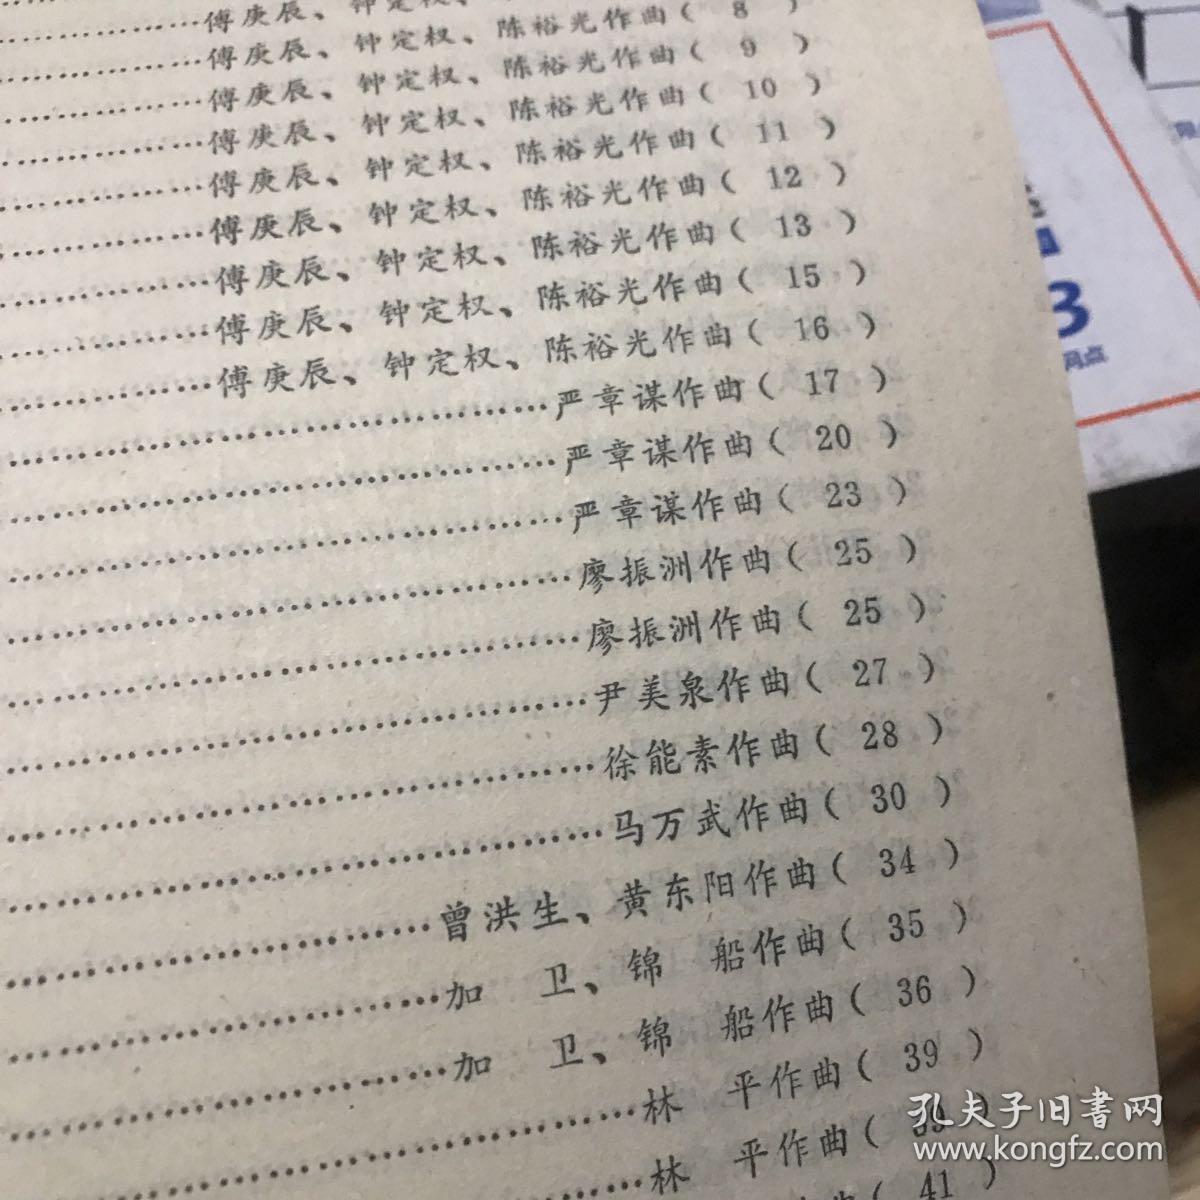 ………傅庚辰、钟定权、
………傅庚辰、钟定权、陈裕光作曲( 8 )
………傅庚辰、钟定权、陈裕光作曲( 9 )
………傅庚辰、钟定权、陈裕光作曲( 10 )
………傅庚辰、钟定权、陈裕光作曲( 11 )
………傅庚辰、钟定权、陈裕光作曲( 12 )
………傅庚辰、钟定权、陈裕光作曲( 13 )
………傅庚辰、钟定权、陈裕光作曲( 15 )
………傅庚辰、钟定权、陈裕光作曲( 16 )
………严章谋作曲( 17 )
………严章谋作曲( 20 )
………严章谋作曲( 23 )
………廖振洲作曲( 25 )
………廖振洲作曲( 25 )
………尹美泉作曲( 27 )
………徐能素作曲( 28 )
………马万武作曲( 30 )
………曾洪生、黄东阳作曲( 34 )
………加 卫、锦 船作曲( 35 )
………加 卫、锦 船作曲( 36 )
………林 平作曲( 39 )
………林 平作曲( 39 )
曲( 41 )
3
网点
孔夫子旧书网
www.kongfz.com